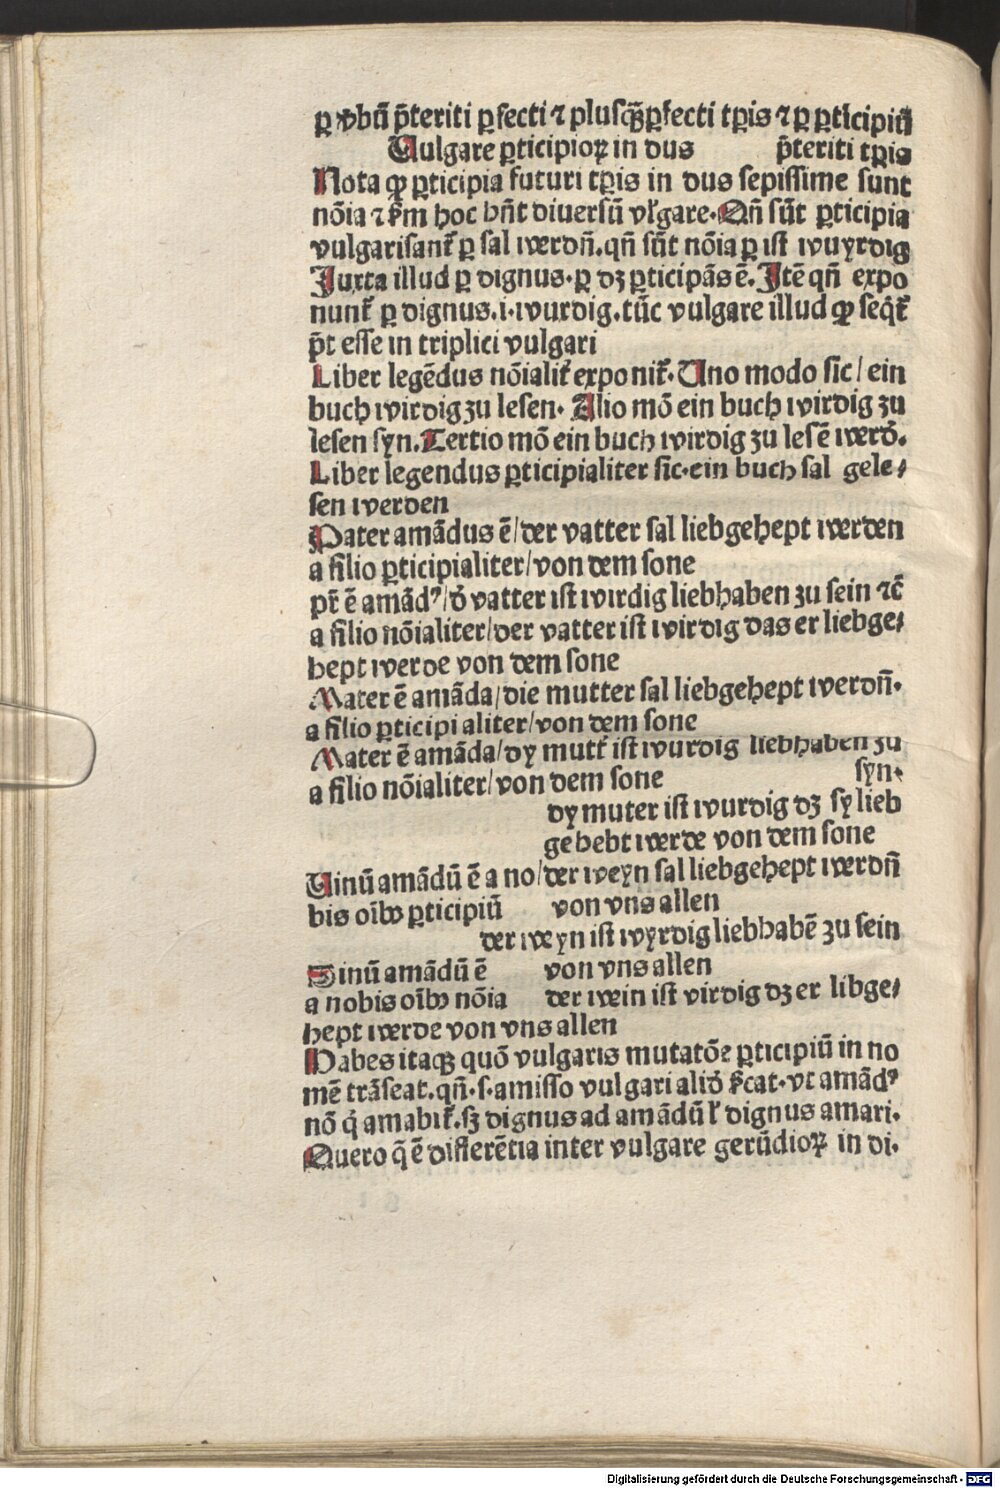 ꝑ ỽbū p̄teriti ꝑfecti ⁊ pluſꝗ̄ꝑfecti tꝑis ⁊ ꝑ ꝑticipiū
Uulgare ꝑticipioꝝ in dus p̄teriti tꝑis
Nota ꝙ ꝑticipia futuri tꝑis in dus ſepiſſime ſunt
nōia ⁊ ẜm hoc hn̄t diuerſū vl̓gare. Qn̄ ſūt ꝑticipia
vulgariſant᷑ ꝑ ſal werdn̄. qn̄ ſūt nōia ꝑ iſt wuyrdig
Iuxta illud ꝑ dignus. ꝑ dꝫ ꝑticipās ē. Itē qn̄ expo
nunt᷑ ꝑ dignus .i. wurdig. tūc vulgare illud ꝙ ſeq̄t᷑
p̄t eſſe in triplici vulgari
Liber legēdus nōialit᷑ exponit᷑. Uno modo ſic / ein
buch wirdig zu leſen. Alio mō ein buch wirdig zu
leſen ſyn. Tertio mō ein buch wirdig zu leſē werd̄.
Liber legendus ꝑticipialiter ſic. ein buch ſal gele⸗
ſen werden
Pater amādus ē / der vatter ſal liebgehept werden
a filio ꝑticipialiter / von dem ſone
pr̄ ē amādꝰ / d̄ vatter iſt wirdig liebhaben zu ſein ⁊c̄
a filio nōialiter / der vatter iſt wirdig das er liebge⸗
hept werde von dem ſone
Mater ē amāda / die mutter ſal liebgehept werdn̄.
a filio ꝑticipialiter / von dem ſone
Mater ē amāda / dy mutt᷑ iſt wurdig liebhaben zu
a filio nōialiter / von dem ſone ſyn.
dy muter iſt wurdig dꝫ ſy lieb
gehebt werde von dem ſone
Uinū amādū ē a no / der weyn ſal liebgehept werdn̄
bis oīb⁹ ꝑticipiū von vns allen
der weyn iſt wyrdig liebhabē zu ſein
Sinū amādū ē von vns allen
a nobis oīb⁹ nōia der wein iſt virdig dꝫ er libge⸗
hept werde von vns allen
Habes itaqꝫ quō vulgaris mutatōe ꝑticipiū in no
mē trāſeat. qn̄ .ſ. amiſſo vulgari aliđ ẜcat. vt amādꝰ
nō q̇ amabit᷑. ſꝫ dignus ad amādū l̓ dignus amari.
Quero q̄ ē differētia inter vulgare gerūdioꝝ in di.
Digitalisierung gefördert durch die Deutsche Forschungsgemeinschaft - DFG